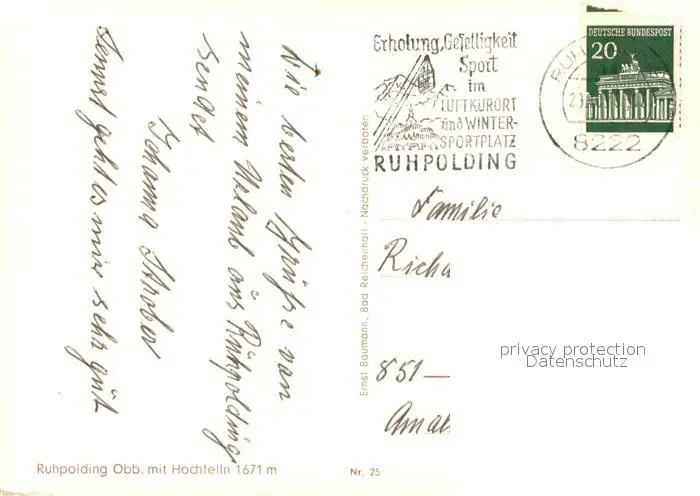 Die besten Grüße von
meinem Urlaub aus Ruhpolding
sendet
Johanna
sonst geht es mir sehr gut
Ruhpolding Obb. mit Hochfelln 1671 m
Nr. 25
Ernst Baumann, Bad Reichenhall - Nachdruck verboten
Erholung, Geselligkeit
Sport
im
LUFTKURORT
und WINTER-
SPORTPLATZ
RUHPOLDING
DEUTSCHE BUNDESPOST
20
8222
Familie
Richa
851
privacy protection
Datenschutz